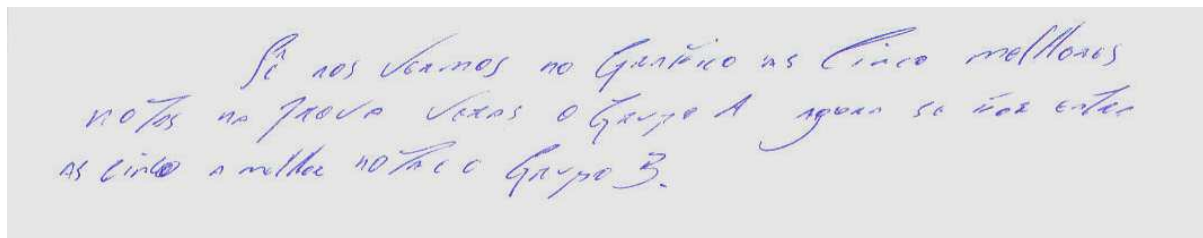 Sê nos vermos no Gráfico as Cinco melhores
notas na prova veras o Grupo A agora se entre
as cinco a melhor nota e o Grupo B.